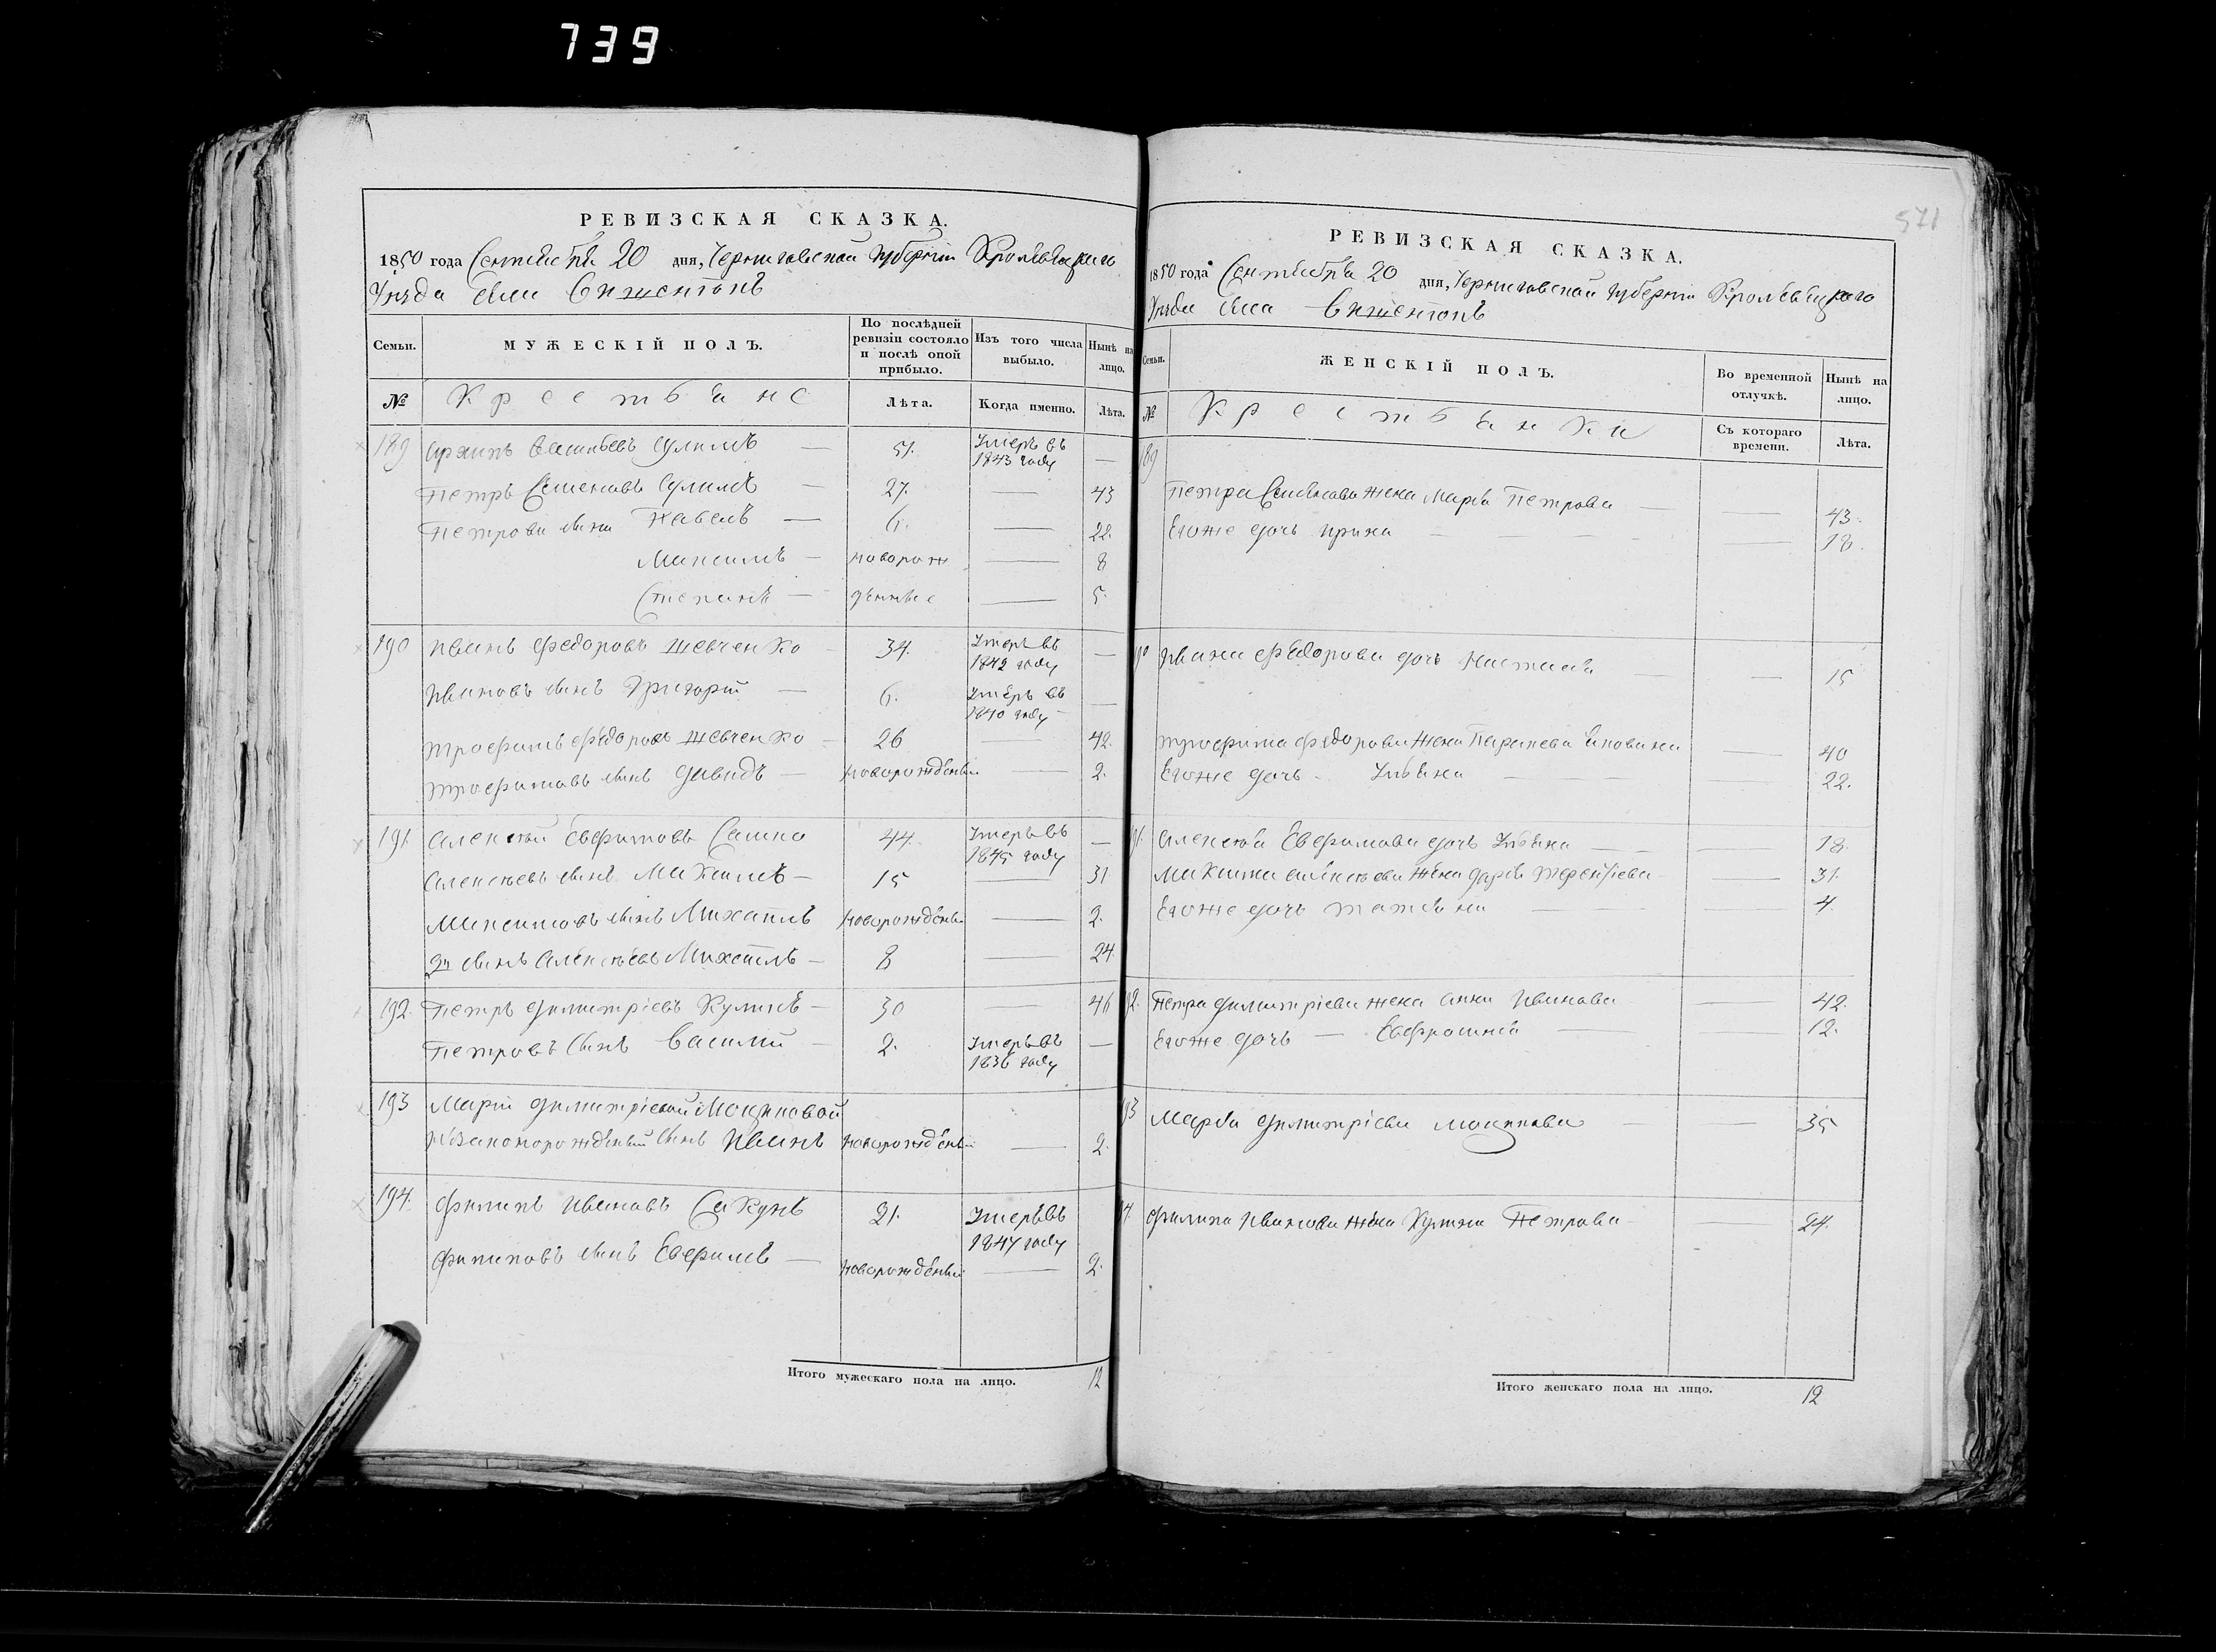 739
571
РЕВИЗСКАЯ СКАЗКА.
1850 года Сентября 20 дня, Черниговской Губернии Кролевецкаго
Уезда Села
МУЖЕСКІЙ ПОЛЪ.
Семьи. По послѣдней ревизіи состояло и послѣ оной прибыло. Изъ того числа выбыло. Нынѣ на лицо.
№ Крестьяне Лѣта. Когда именно. Лѣта.
189 Архипъ Васильевъ Сулимъ — 51. Умеръ въ 1843 году —
Петръ Семеновъ Сулимъ — 27. — 43
Петрови сыни Павелъ — 6. — 22.
Максимъ — новорож — 8
Степанъ — денные — 5.
190 Иванъ Федоровъ Шевченко 34. Умеръ въ 1842 году —
Ивановъ сынъ Григорій — 6. Умеръ въ 1840 году —
Трофимъ Федоровъ Шевченко 26 — 42.
Трофимовъ сынъ Давидъ — новорожденный — 2.
191. Алексѣй Евфимовъ Сашко 44. Умеръ въ 1845 году —
Алексѣевъ сынъ Максимъ — 15 — 31
Максимовъ сынъ Михаилъ новорожденный — 2.
2й сынъ Алексѣевъ Михаилъ — 8 — 24.
192. Петръ Димитріевъ — 30 — 46
Петровъ сынъ Василій — 2. Умеръ въ 1836 году —
193 Маріи Димитріевой
Незаконорожденный сынъ Иванъ новорожденный — 2.
194. Филипъ Ивановъ Сакунъ 21. Умеръ въ 1847 году
Филиповъ сынъ Евфимъ — новорожденный — 2.
Итого мужескаго пола на лицо. 12
РЕВИЗСКАЯ СКАЗКА.
1850 года Сентября 20 дня, Черниговской Губернии Кролевецкаго
Уезда Села
Семьи. ЖЕНСКІЙ ПОЛЪ. Во временной отлучкѣ. Нынѣ на лицо.
№ Крестьянки Съ котораго времени. Лѣта.
189
Петра Семенова жена Марья Петрова — — 43.
Егоже дочь Ирина — — 18.
90 Ивана Федорова дочь Настасья — — 15
Трофима Федорова жена Парасковья — 40
Егоже дочь Ульяна — — 22.
91. Алексѣя Евфимова дочь Ульяна — — 18.
Максима Алексѣева жена Дарья Терентіева — 31.
Егоже дочь Татьяна — — 4.
92. Петра Димитріева жена Анна Иванова — 42.
Егоже дочь — Евфросинія — — 12.
93 Марья Димитріева — — 35
94. Филипа Иванова жена Кулина Петрова — — 24.
Итого женскаго пола на лицо. 12